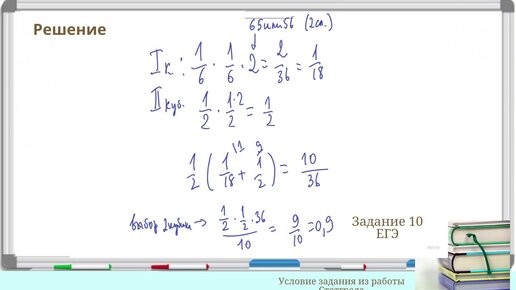 Решение
65 или 56 (2сл.)
I к: 1/6 · 1/6 · 2 = 2/36 = 1/18
II куб. 1/2 · 1·2/2 = 1/2
1/2 (1\1/18 + 1\9/2) = 10/36
выбор 2 кубика → 1/2 · 1/2 · 36 / 10 = 9/10 = 0,9
Задание 10
ЕГЭ
Условие задания из работы
Статграда